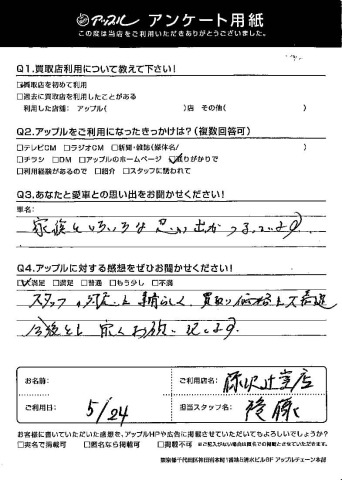 アップル アンケート用紙
この度は当店をご利用いただきありがとうございました。
Q1.買取店利用について教えて下さい!
☑買取店を初めて利用
□過去に買取店を利用したことがある
利用した店舗:アップル( )店 その他( )
Q2.アップルをご利用になったきっかけは?(複数回答可)
□テレビCM □ラジオCM □新聞・雑誌(媒体名/ )
□チラシ □DM □アップルのホームページ ☑通りがかりで
□利用経験があるので □紹介 □スタッフに誘われて
Q3.あなたと愛車との思い出をお聞かせください!
車名:
家族といろいろな思い出がつまっています
Q4.アップルに対する感想をぜひお聞かせください!
☑大満足 □満足 □普通 □もう少し □不満
スタッフの対応も素晴らしく、買取り価格も大満足
今後とも宜しくお願い致します。
お名前:
ご利用店名: 藤沢辻堂店
ご利用日: 5/24
担当スタッフ名: 後藤
お客様に書いていただいた感想を、アップルHPや広告に掲載させていただいてもよろしいでしょうか?
□実名で掲載可 □匿名なら掲載可 □掲載不可 ※ご記入がない場合は匿名での掲載とさせていただきます。
アップルチェーン本部